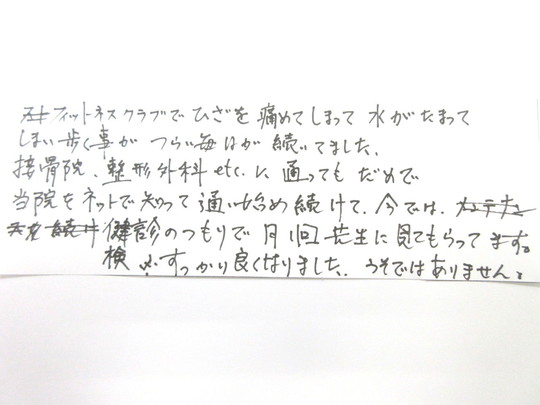 フィットネスクラブで ひざを 痛めてしまって 水がたまって
しまい歩く事が つらい毎日が 続いてました。
接骨院、整形外科 etc. に 通っても だめで
当院をネットで知って 通い始め 続けて、今では、
続け 健診のつもりで 月1回 先生に見てもらってます。
検 すっかり良くなりました。うそではありません。